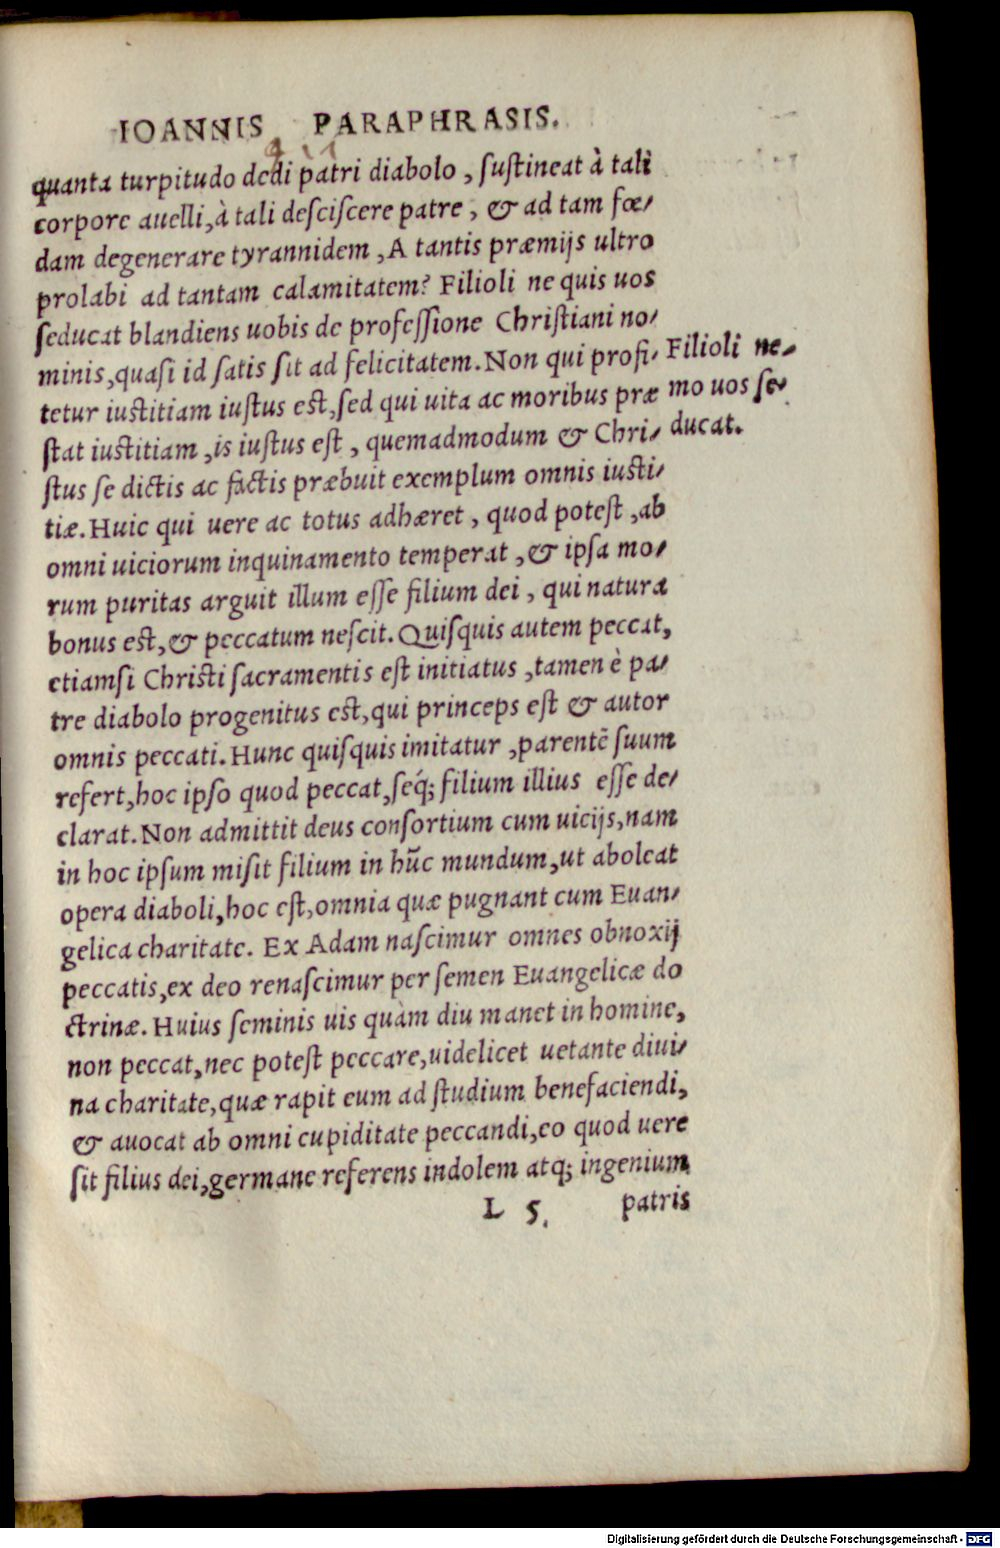 IOANNIS PARAPHRASIS.
quanta turpitudo dedi patri diabolo, ſuſtineat à tali
corpore auelli, à tali deſciſcere patre, & ad tam fœ-
dam degenerare tyrannidem, A tantis præmijs ultro
prolabi ad tantam calamitatem? Filioli ne quis uos
ſeducat blandiens uobis de profeſſione Chriſtiani no-
minis, quaſi id ſatis ſit ad felicitatem. Non qui profi-
tetur iuſtitiam iuſtus eſt, ſed qui uita ac moribus præ
ſtat iuſtitiam, is iuſtus eſt, quemadmodum & Chri-
ſtus ſe dictis ac factis præbuit exemplum omnis iuſti-
tiæ. Huic qui uere ac totus adhæret, quod poteſt, ab
omni uiciorum inquinamento temperat, & ipſa mo-
rum puritas arguit illum eſſe filium dei, qui natura
bonus eſt, & peccatum neſcit. Quiſquis autem peccat,
etiamſi Chriſti ſacramentis eſt initiatus, tamen è pa-
tre diabolo progenitus eſt, qui princeps eſt & autor
omnis peccati. Hunc quiſquis imitatur, parentē ſuum
refert, hoc ipſo quod peccat, ſeq́; filium illius eſſe de-
clarat. Non admittit deus conſortium cum uicijs, nam
in hoc ipſum miſit filium in hūc mundum, ut aboleat
opera diaboli, hoc eſt, omnia quæ pugnant cum Euan-
gelica charitate. Ex Adam naſcimur omnes obnoxij
peccatis, ex deo renaſcimur per ſemen Euangelicæ do
ctrinæ. Huius ſeminis uis quàm diu manet in homine,
non peccat, nec poteſt peccare, uidelicet uetante diui-
na charitate, quæ rapit eum ad ſtudium benefaciendi,
& auocat ab omni cupiditate peccandi, eo quod uere
ſit filius dei, germane referens indolem atq; ingenium
L 5. patris
Filioli ne-
mo uos ſe-
ducat.
Digitalisierung gefördert durch die Deutsche Forschungsgemeinschaft - DFG